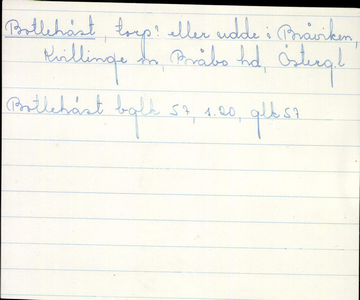 Botlehåst, torp? eller udde i Bråviken,
Kvillinge sn, Bråbo hd, Österg.l
Botlehåst bglk 57, s. 20, glk 57